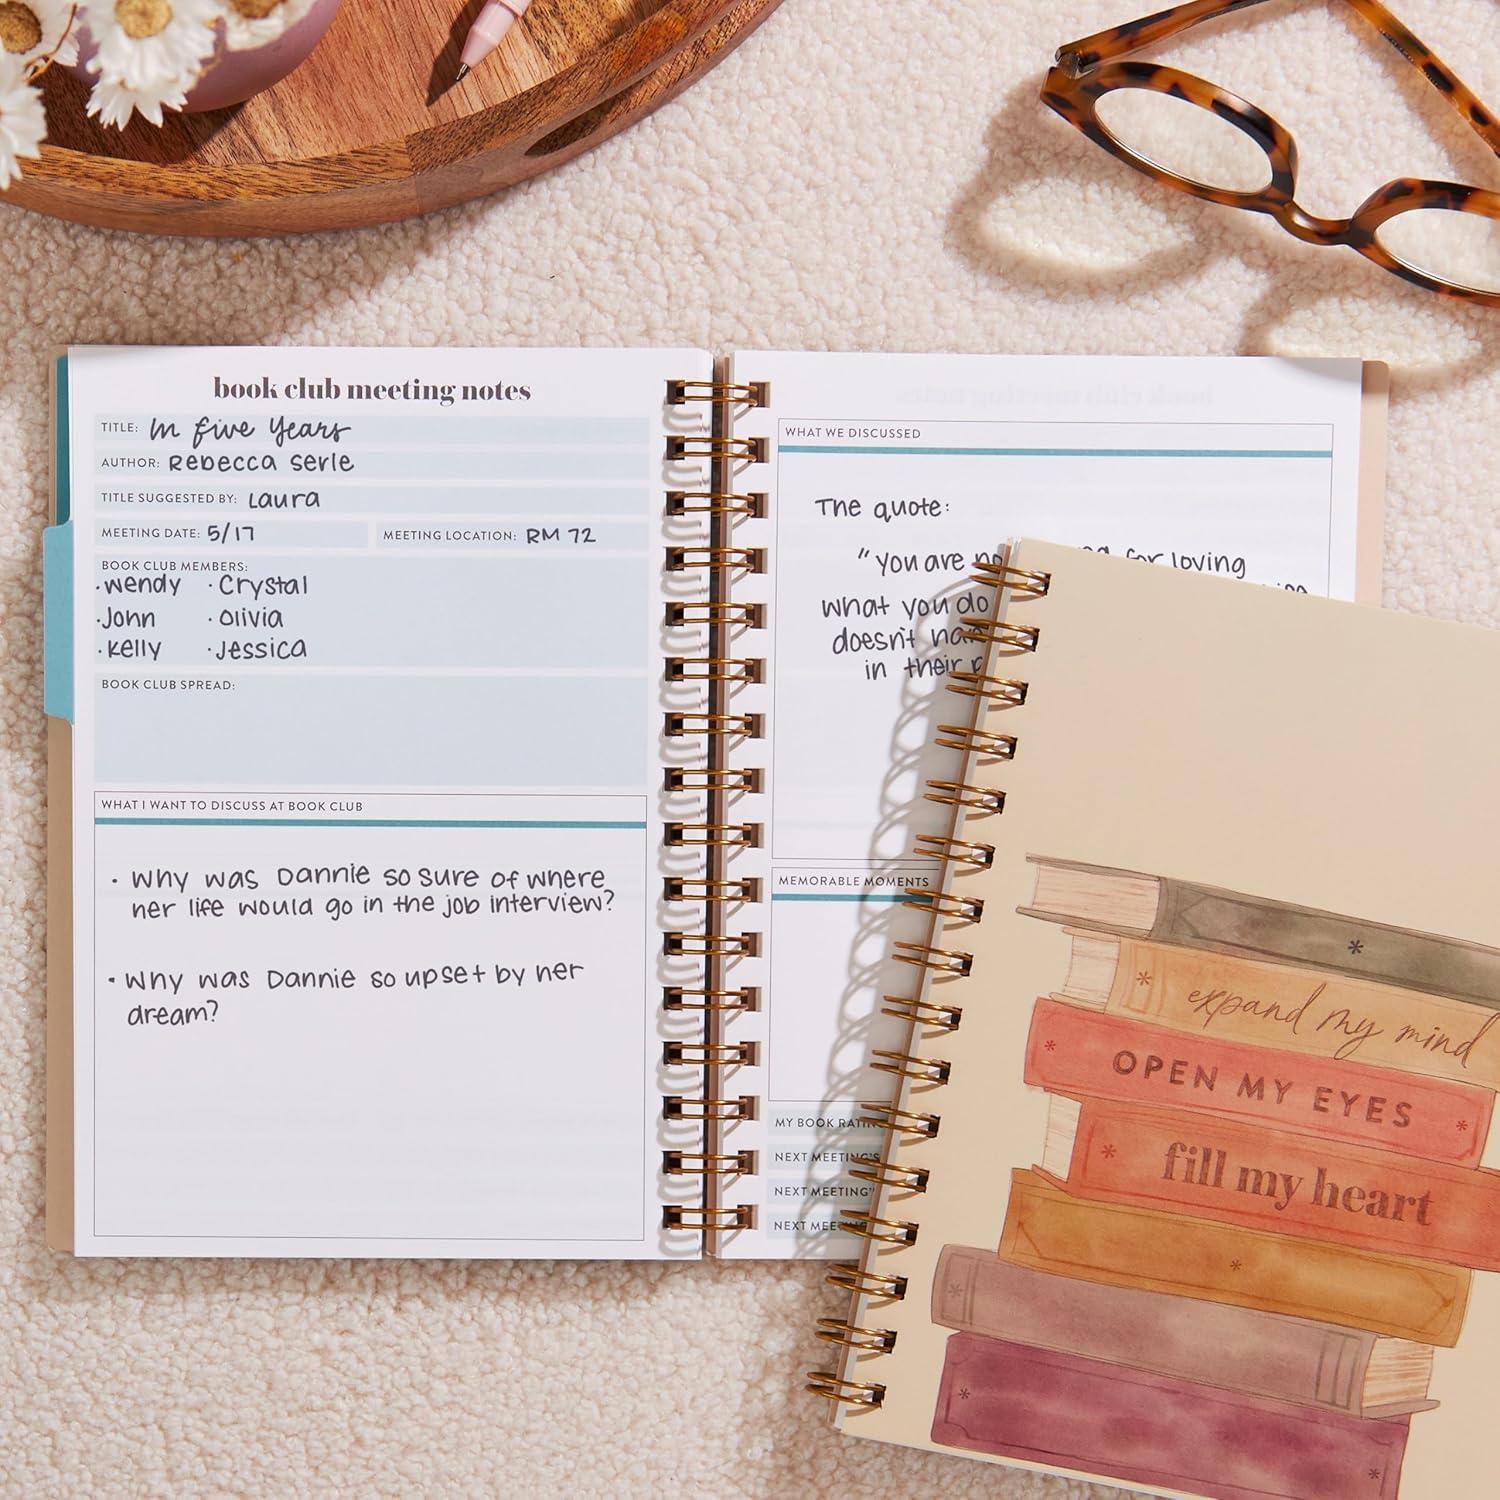 book club meeting notes
TITLE: In Five Years
AUTHOR: Rebecca Serle
TITLE SUGGESTED BY: Laura
MEETING DATE: 5/17 MEETING LOCATION: RM 72
BOOK CLUB MEMBERS:
· Wendy · Crystal
· John · Olivia
· Kelly · Jessica
BOOK CLUB SPREAD:
WHAT I WANT TO DISCUSS AT BOOK CLUB
· Why was Dannie so sure of where
her life would go in the job interview?
· Why was Dannie so upset by her
dream?
WHAT WE DISCUSSED
The quote:
"You are for loving
what you do
doesn't
in their
MEMORABLE MOMENTS
MY BOOK
NEXT MEETING'S
NEXT MEETING'
NEXT
expand my mind
OPEN MY EYES
fill my heart